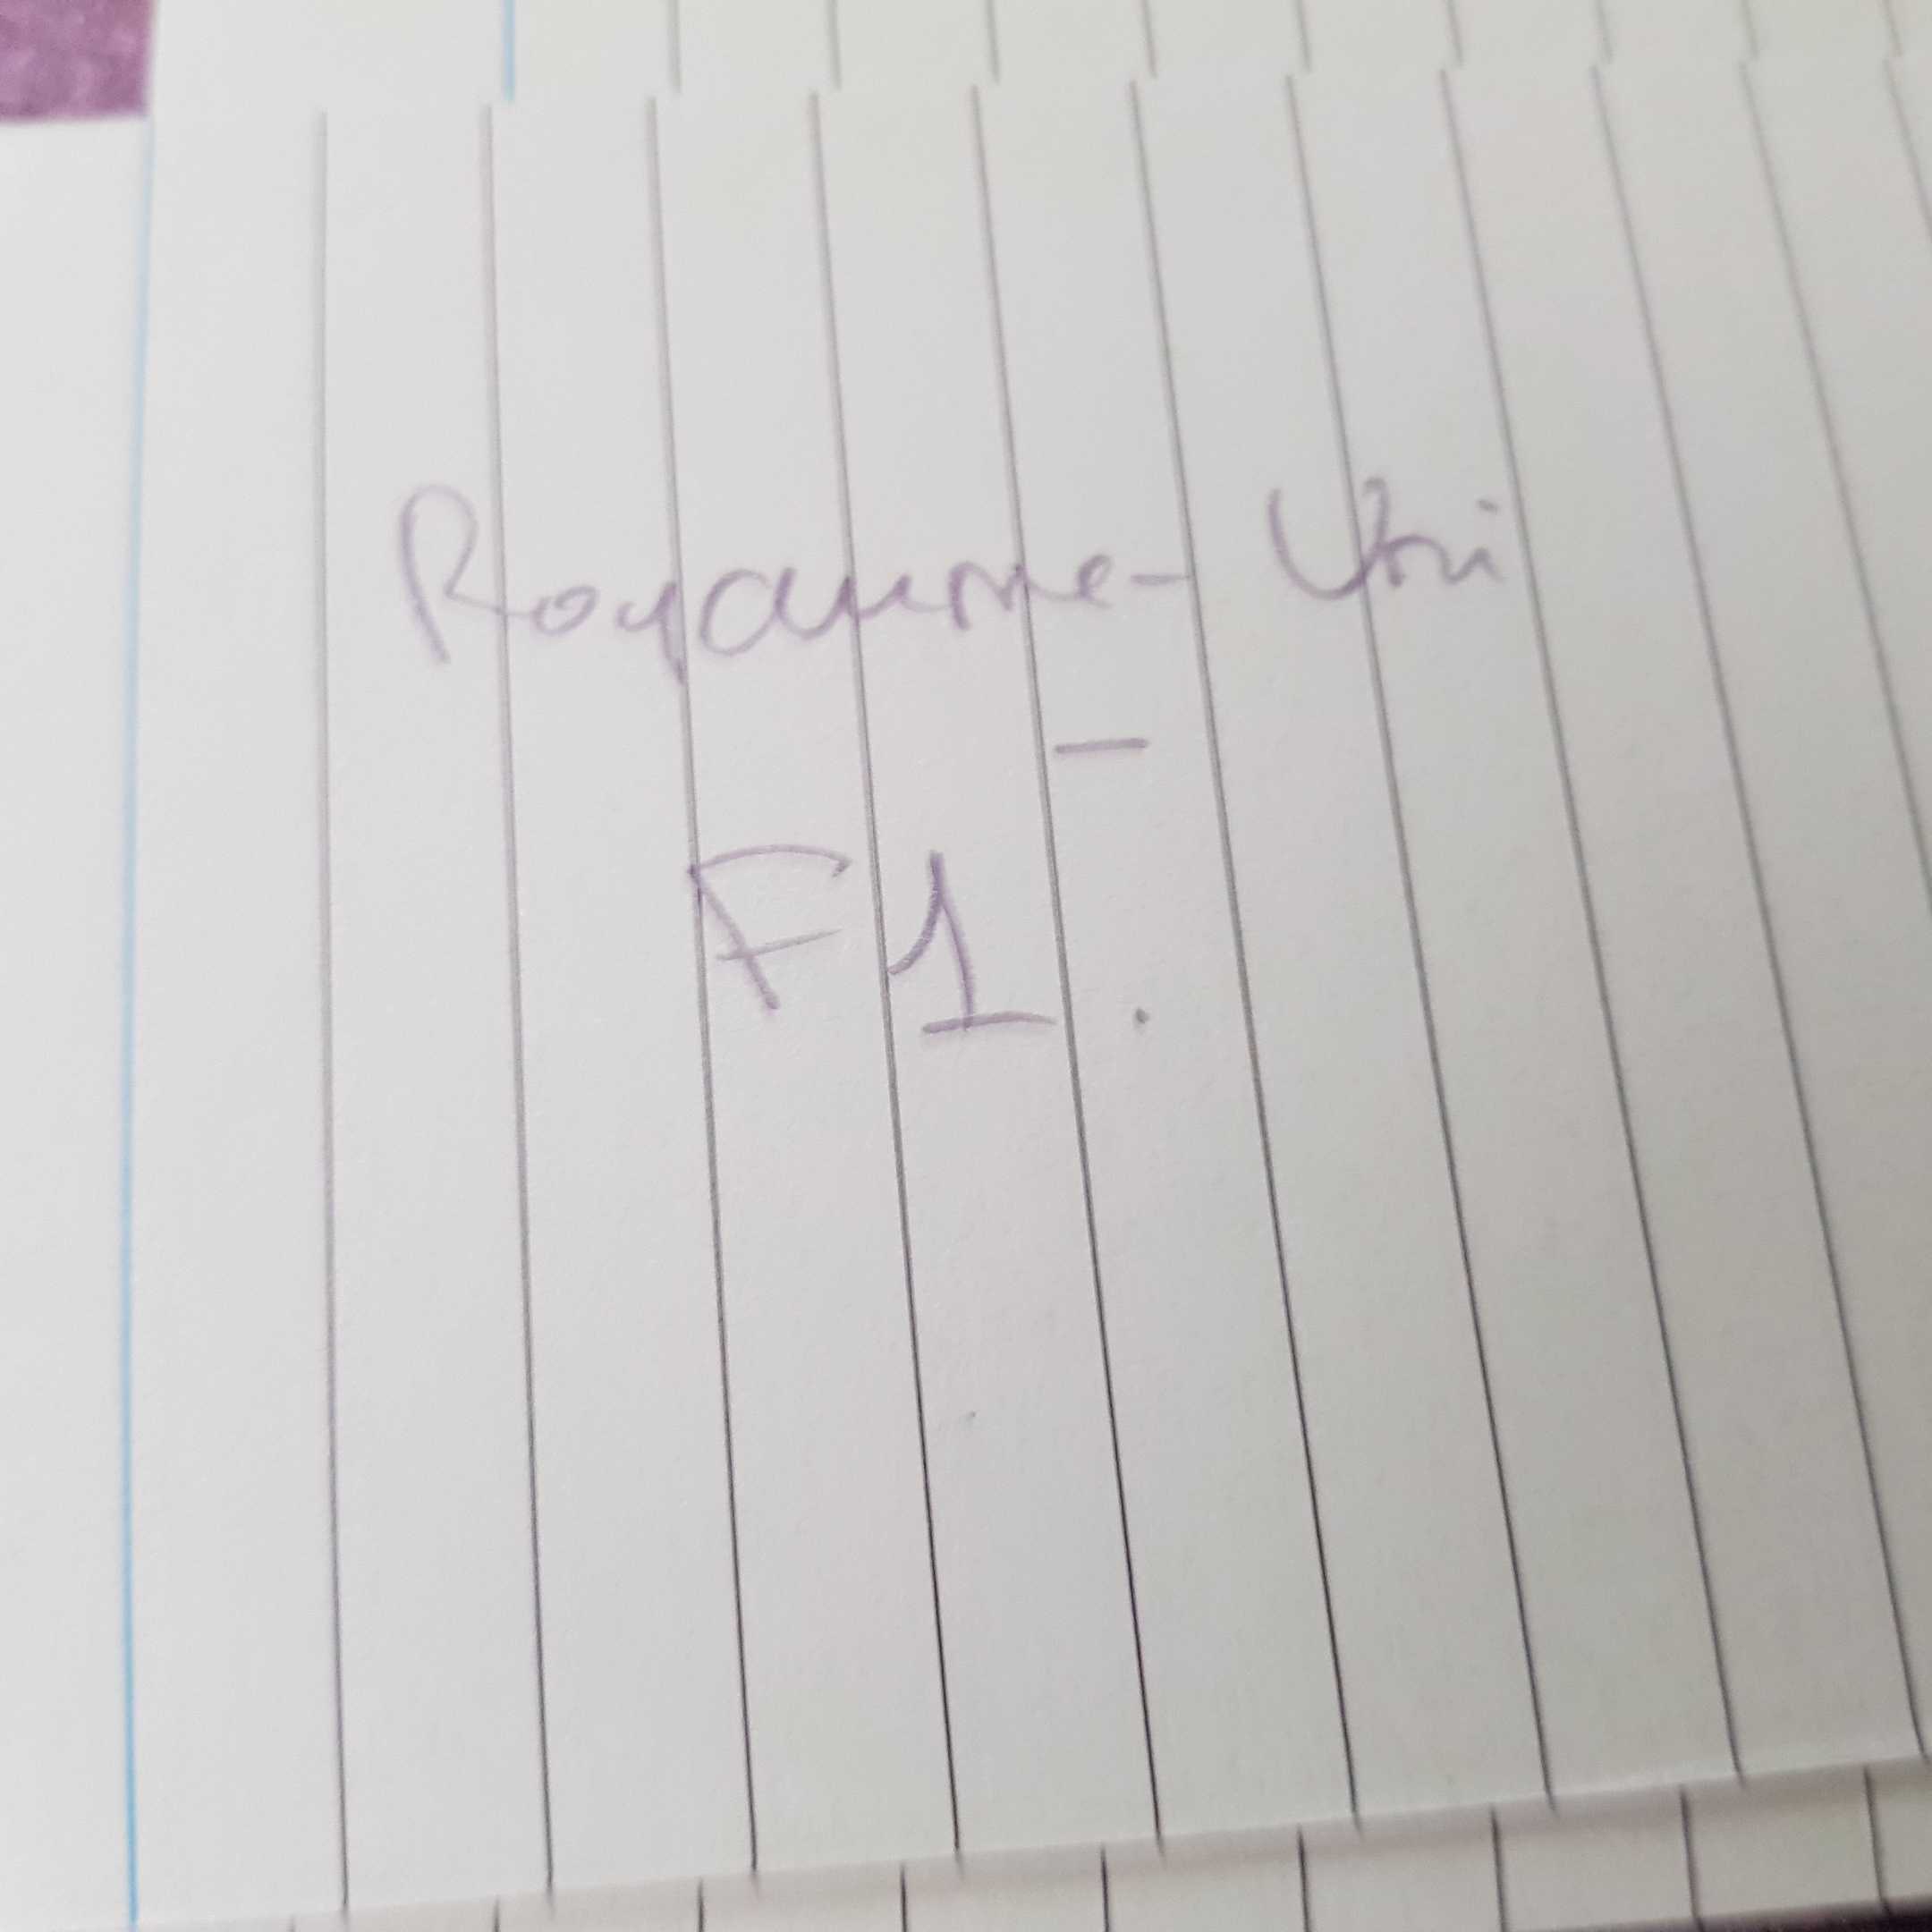 Royaume-Uni
-
F1.